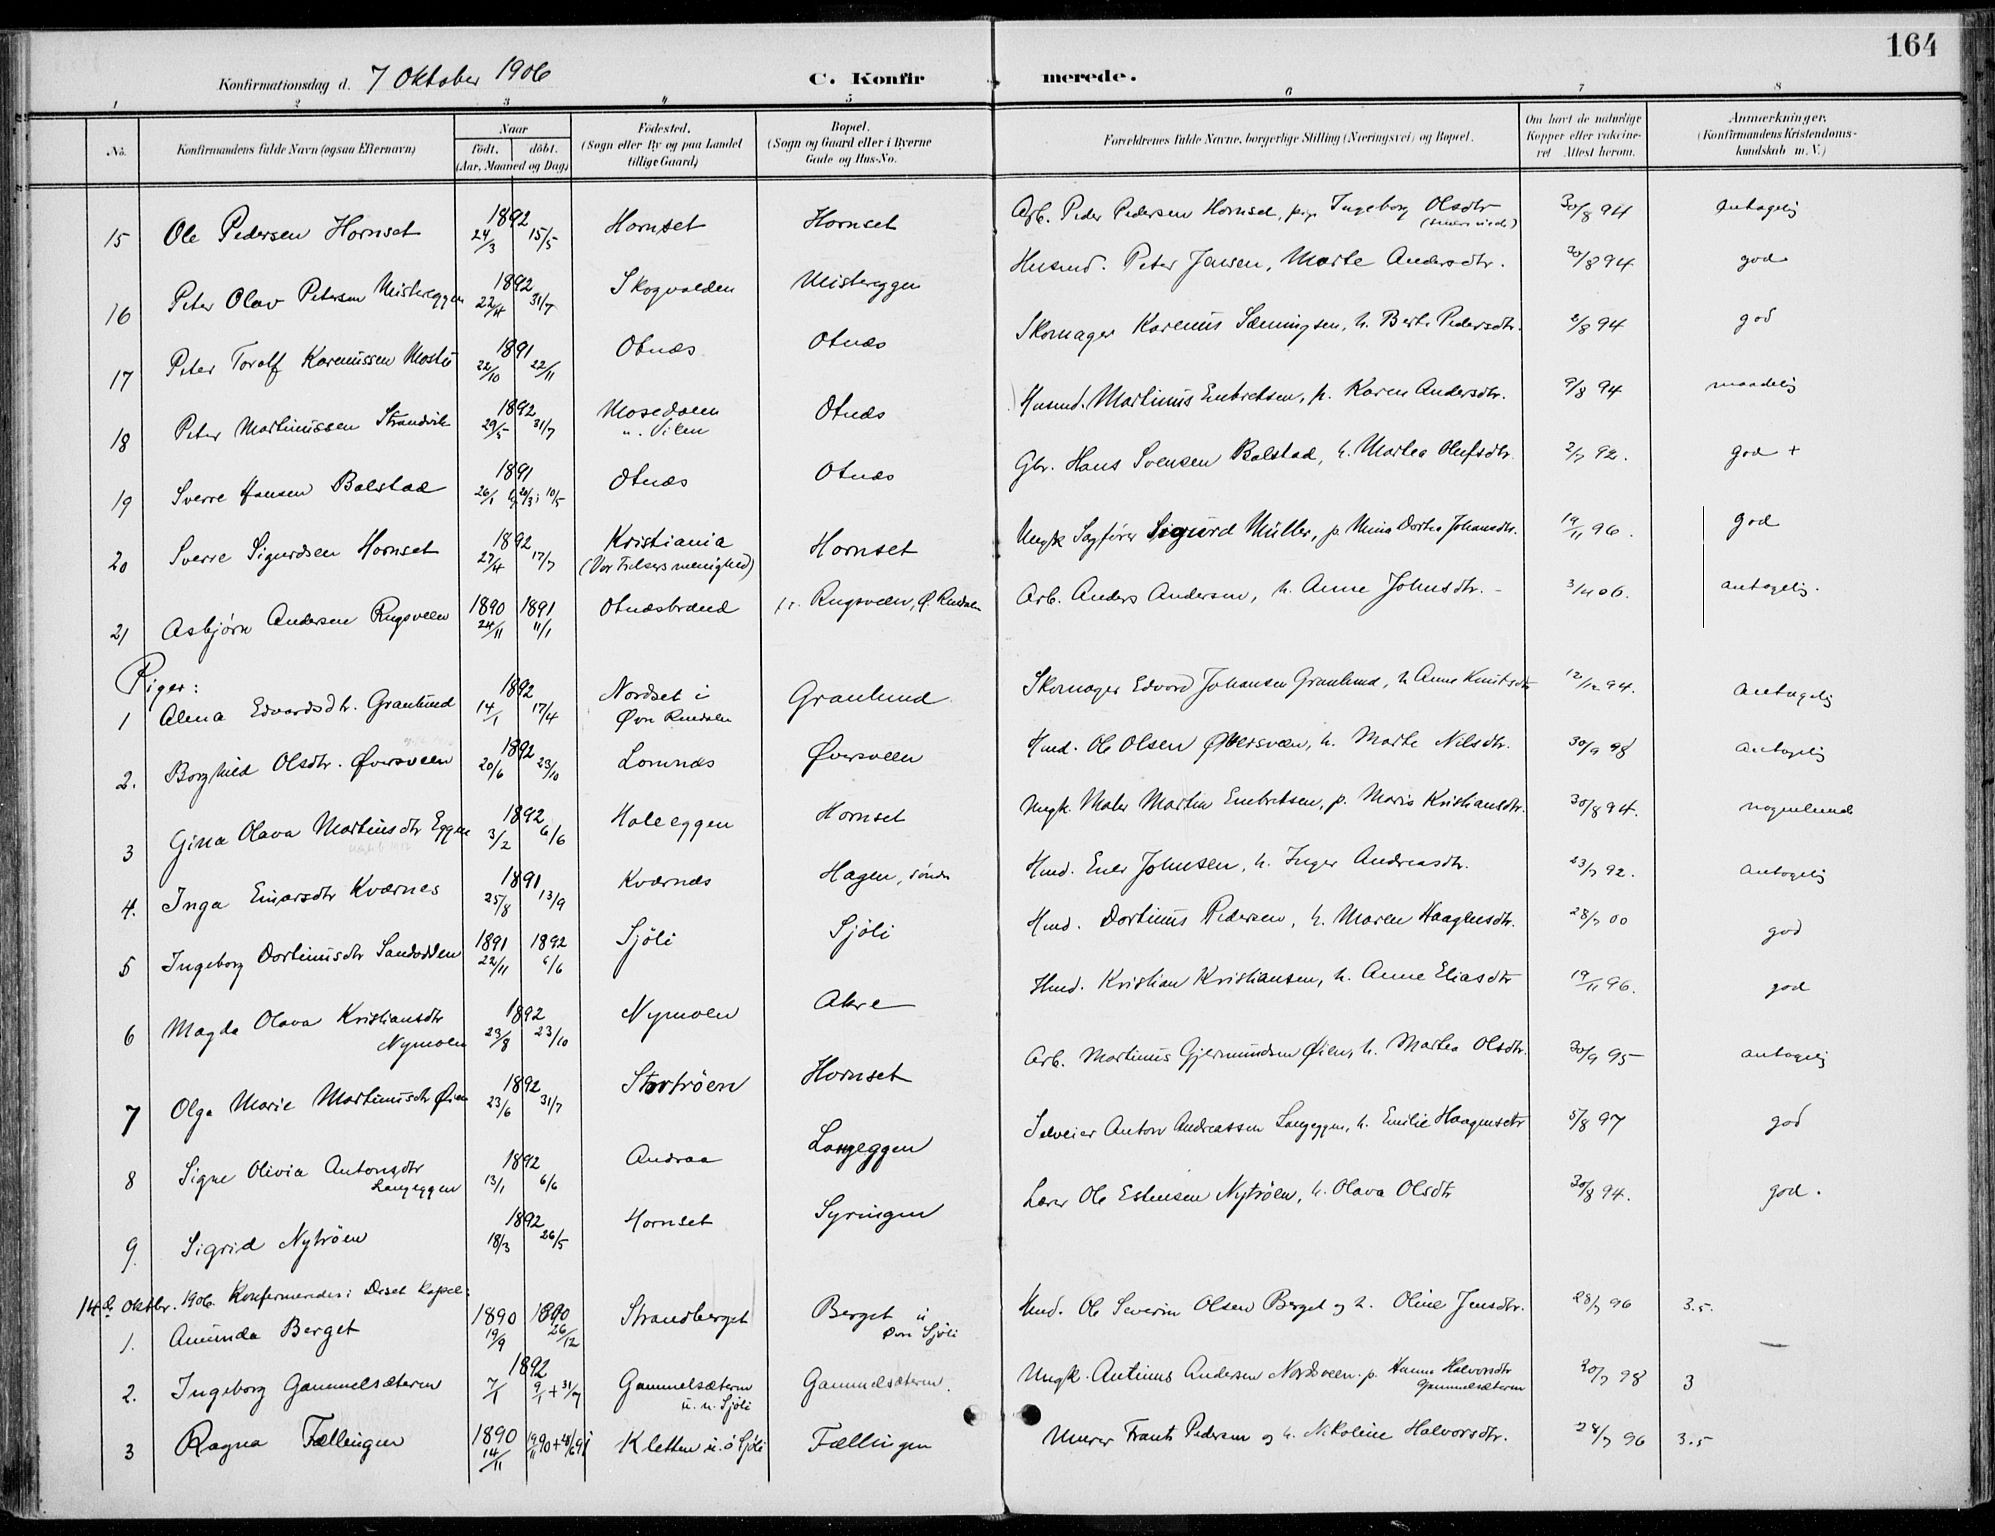 164
Konfirmationsdag d. 7 Oktober 1906 C. Konfirmerede.
1 2 3 4 5 6 7 8
No. Konfirmandens fulde Navn (ogsaa Efternavn) Naar født. døbt. (Aar, Maaned og Dag) Fødested. (Sogn eller By og paa Landet tillige Gaard) Bopæl. (Sogn og Gaard eller i Byerne Gade og Hus-No. Forældrenes fulde Navne, borgerlige Stilling (Næringsvei) og Bopæl. Om havt de naturlige Kopper eller vakcineret Attest herom. Anmærkninger. (Konfirmandens Kristendomskundskab m. V.)
15 Ole Pedersen Hornset 1892 24/3 15/5 Hornset Hornset Arb. Peder Pedersen Hornset, pig. Ingeborg Olsdtr 30/8 94 antagelig
16 Peter Olav Petersen Mistereggen 1892 22/4 31/7 Skogvolden Mistereggen Husmd. Peter Jensen, Marte Andersdtr. 30/8 94 god
17 Peter Torolf Karenussen Mostu 1891 22/10 22/11 Otnæs Otnæs Skomager Karenus Sæmingsen, h. Berte Pedersdtr. 2/8 94 god
18 Peter Martinussen Strandvik 1892 29/5 31/7 Mosedalen u. Viken Otnæs Husmd. Martinus Embretsen, h. Karen Andersdtr. 9/8 94 maadelig
19 Sverre Hansen Balstad 1891 26/1 20/3; 10/5 Otnæs Otnæs Gbr. Hans Svensen Balstad, h. Martea Olufsdtr. 2/7 92. god +
20 Sverre Sigurdsen Hornset 1892 27/4 17/7 Kristiania (Vor Frelsers menighed) Hornset Ungk Sagfører Sigurd Müller, p. Mina Dortea Johansdtr. 19/11 96. god
21 Asbjørn Andersen Rugsveen 1890 24/11 1891 11/1 Otnæsbrænd Rugsveen, Ø. Rendalen Arb. Anders Andersen, h. Anne Johnsdtr. 3/4 06. antagelig.
Piger:
1 Alma Edvardsdtr. Granlund 1892 14/1 17/4 Nordset i Øvre Rendalen Granlund Skomager Edvard Johansen Granlund, h Anne Knutsdtr 12/12 94. antagelig
2. Borghild Olsdtr. Øversveen 1892 20/6 23/10 Lomnæs Øversveen Hmd. Ole Olsen Øversveen, h. Marte Nilsdtr. 30/9 98 antagelig
3 Gina Olava Martinsdtr Eggen 1892 3/2 6/6 Holeeggen Hornset Ungk. Maler Martin Embretsen, p. Maris Kristiansdtr. 30/8 94. nogenlunde
4. Inga Einarsdtr Kværnes 1891 25/8 13/9 Kværnæs Hagen, søndre Hmd. Ener Johnsen, h. Inger Andreasdtr. 23/7 92. antagelig
5 Ingeborg Dortinusdtr Sandodden 1891 22/11 1892 6/6 Sjøli Sjøli Hmd. Dortinus Pedersen, h. Maren Haagensdtr. 28/7 00 god
6 Magda Olava Kristiansdtr Nymoen 1892 23/8 23/10 Nymoen Akre Hmd. Kristian Kristiansen, h. Anne Eliasdtr 19/11 96. god
7 Olga Marie Martinusdtr Øien 1892 23/6 31/7 Stortrøen Hornset Arb. Martinus Gjermundsen Øien, h. Martea Olsdtr. 30/9 95 antagelig
8 Signe Olivia Antonsdtr Langeggen 1892 13/1 6/6 Andraa Langeggen Selveier Anton Andreassen Langeggen, h. Emilie Haagensdtr 5/8 97 god
9. Sigrid Nytrøen 1892 18/3 26/5 Hornset Syringen Lærer Ole Estensen Nytrøen, h. Olava Olsdtr 30/8 94. god.
14de Oktbr. 1906. Konfirmeredes i Deset Kapel:
1. Amunda Berget 1890 19/9 1890 26/12 Strandberget Berget u Øvre Sjøli Hmd. Ole Severin Olsen Berget og h. Oline Jensdtr. 28/7 96 3.5
2. Ingeborg Gammelsæteren 1892 7/1 9/1 + 31/7 Gammelsæteren u. n. Sjöli Gammelsæteren. Ungk. Antinus Andersen Nordsveen. p. Hanna Halvorsdtr Gammelsæteren 20/7 98 3
3 Ragna Fællingen 1890 14/11 19/11 90 + 28/6 91 Kletten u. ö Sjöli Fællingen Murer Frants Pedersen og h. Nikoline Halvorsdtr. 28/7 96 3.5